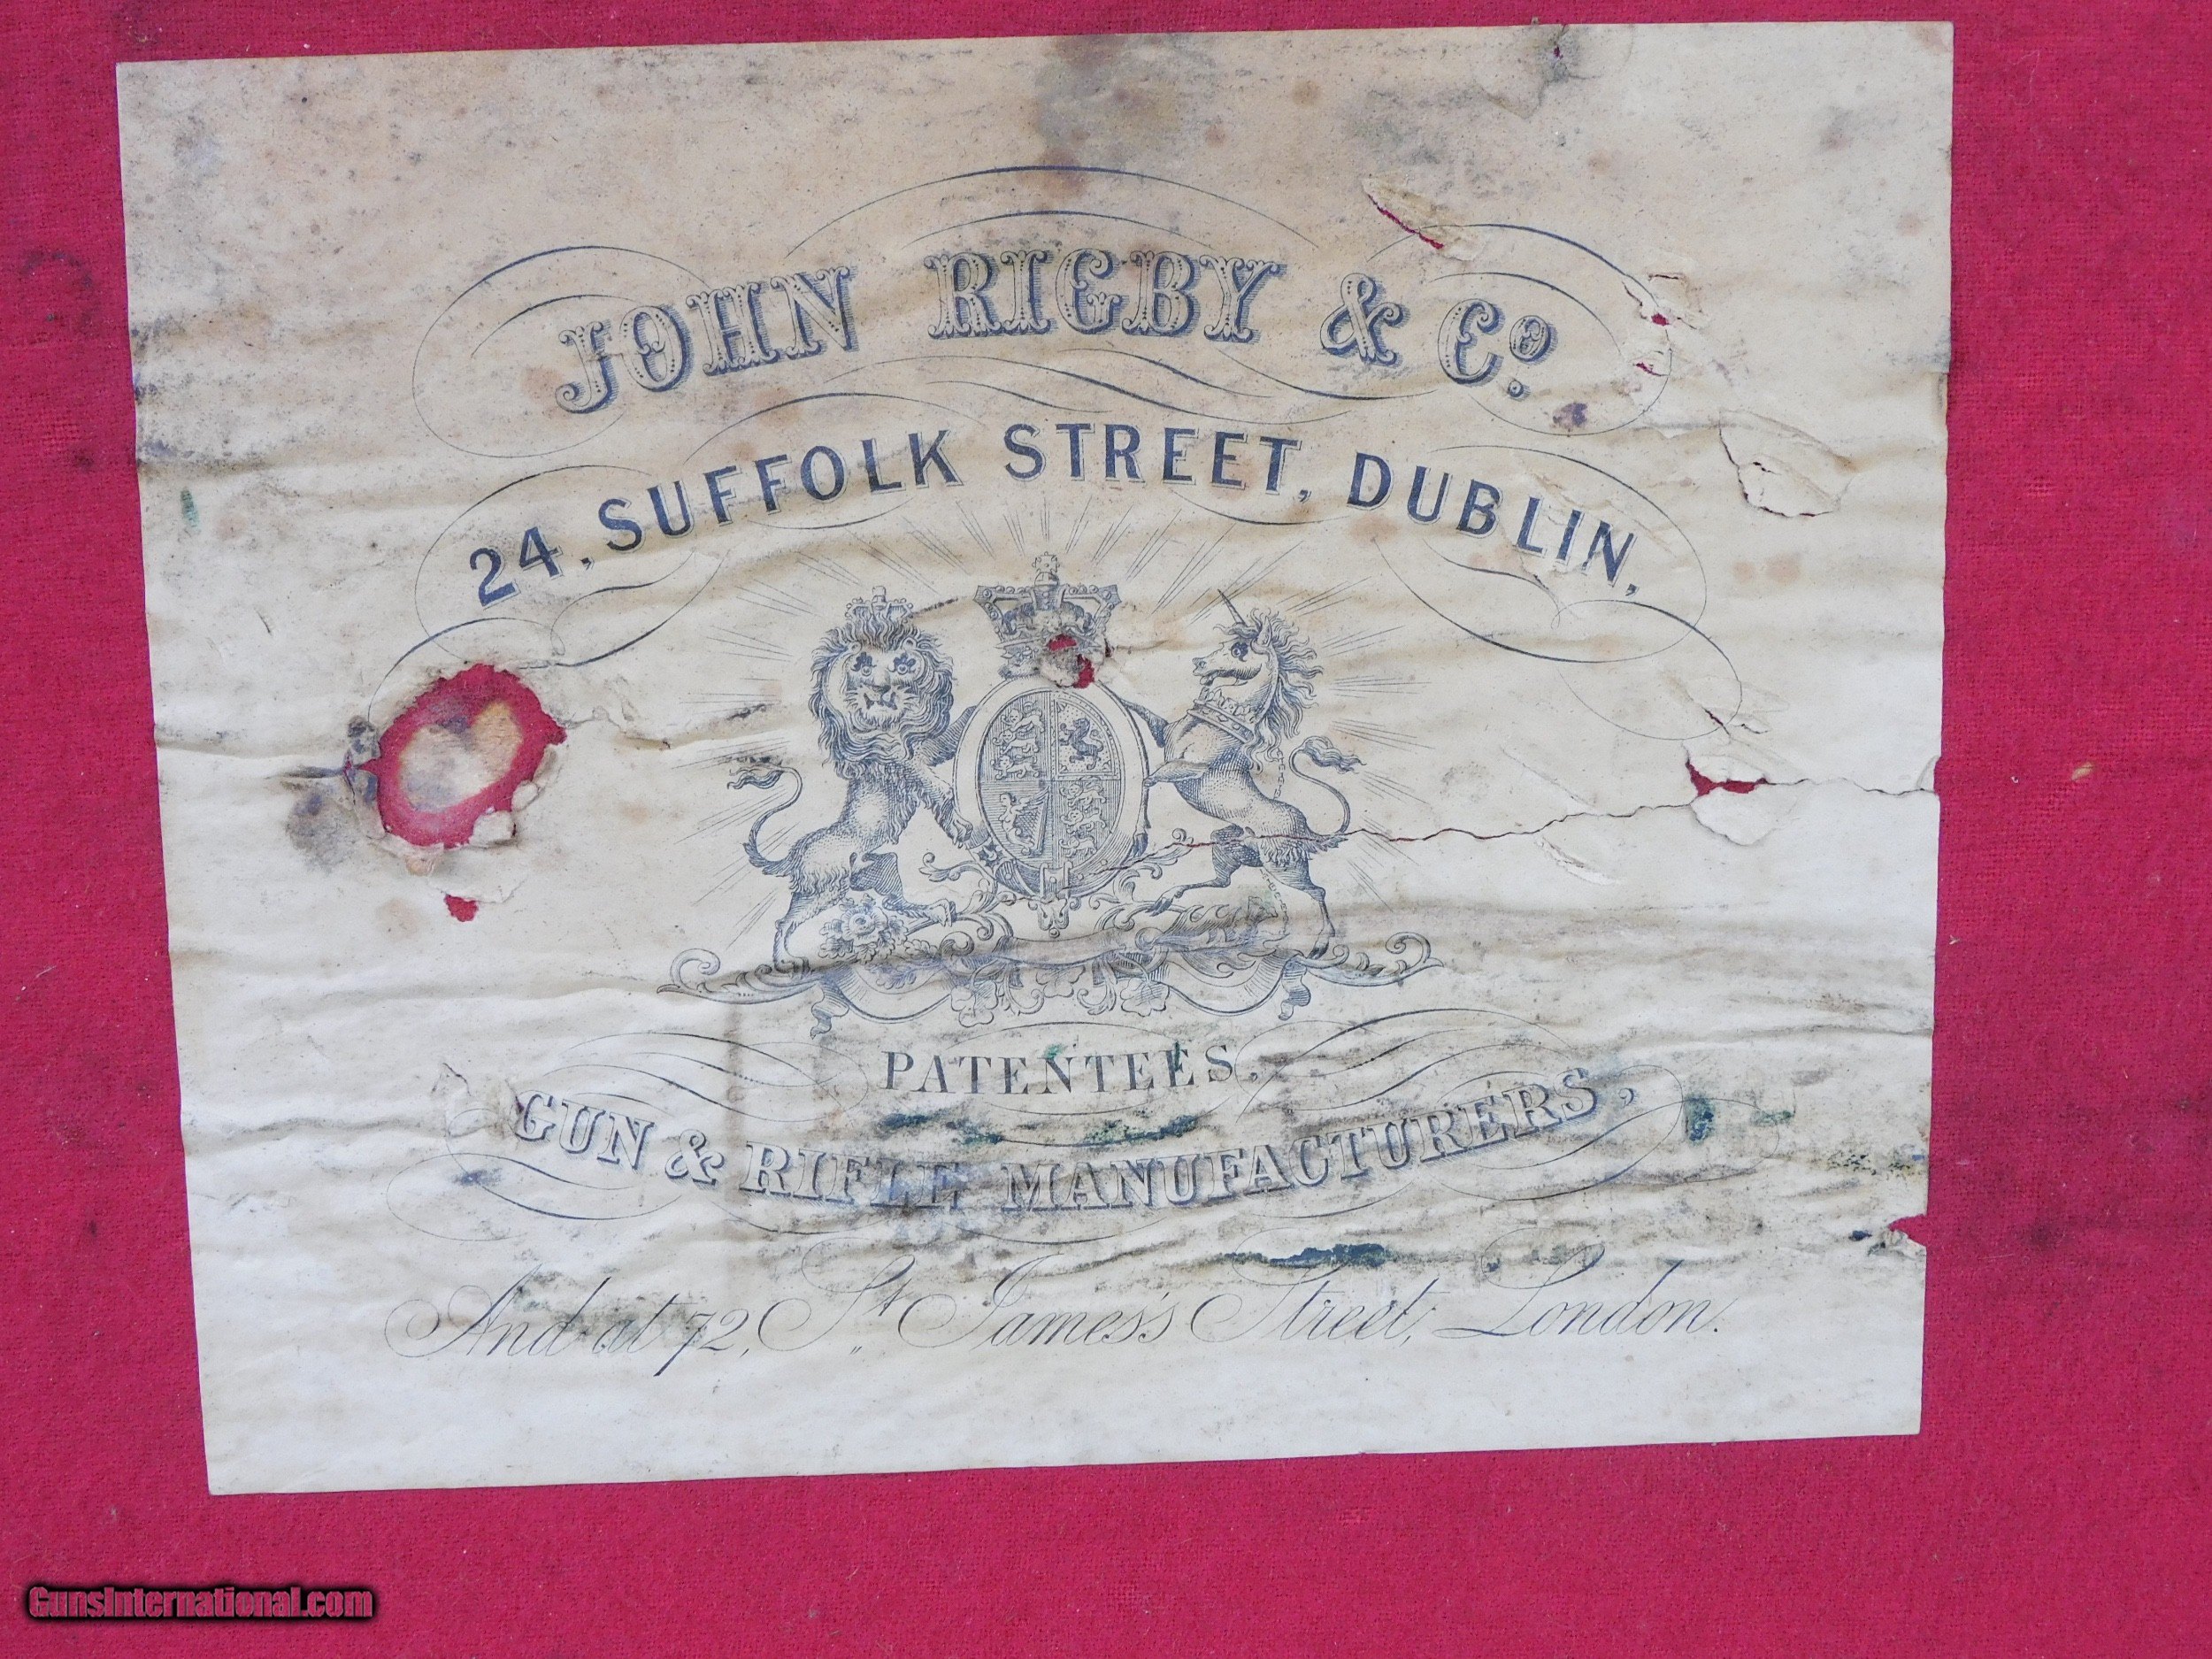 JOHN RIGBY & Co.
24, SUFFOLK STREET, DUBLIN,
PATENTEES.
GUN & RIFLE MANUFACTURERS,
And at 72, St James's Street, London.
GunsInternational.com